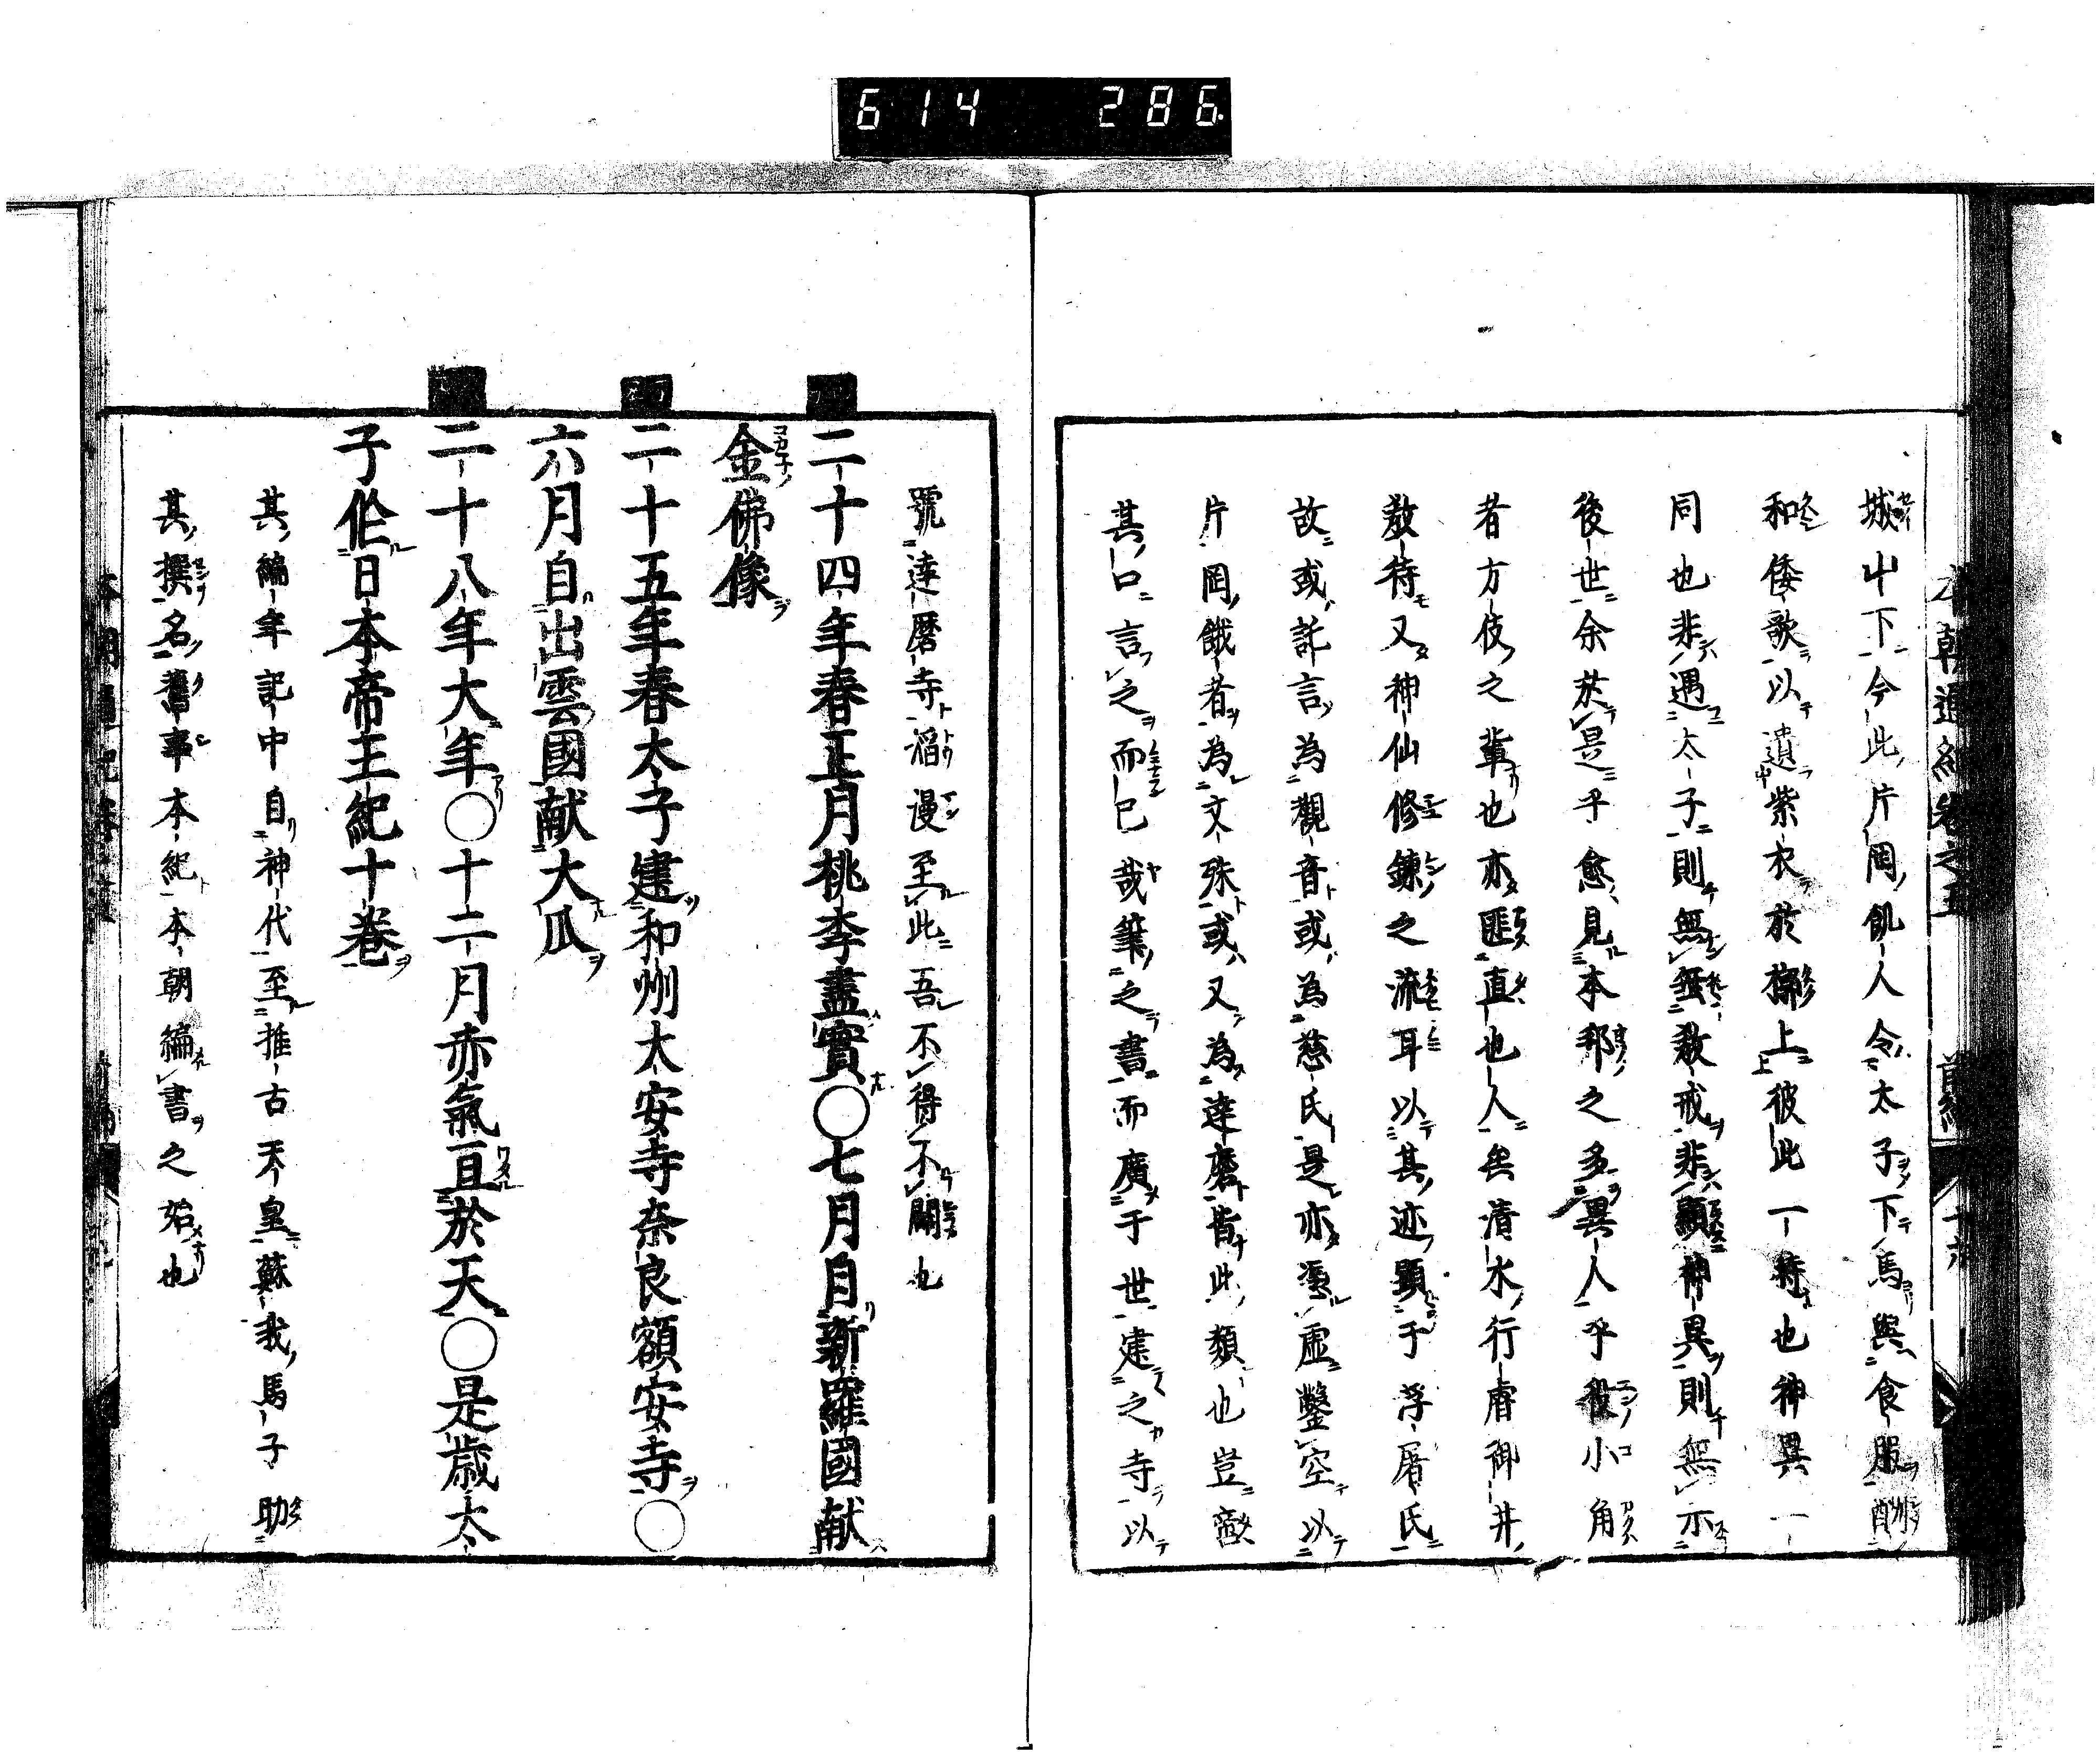 614 286
本朝通紀卷之五 前編 十六
城山下今此片岡飢人令太子下馬與食服酬
和倭歌以遺紫衣於櫬上彼此一轍也神異一
同也非遇太子則無無教戒非顯神異則無示
後世余於是乎愈見本邦之多異人乎役小角
者方伎之輩也亦匪直也人無清水行睿御井
教待又神仙修鍊之流耳以其迹顯于浮屠氏
故或託言為觀音或為慈氏是亦憑虛鑿空以
片岡餓者為文殊或又為達磨皆此類也豈啻
其口言之而已哉筆之書而廣于世建之寺以
號達磨寺滔漫至此吾不得不闢也
二十四年春正月桃李盡實〇七月自新羅國献
金佛像
二十五年春太子建和州太安寺奈良額安寺〇
六月自出雲國献大瓜
二十八年大年〇十二月赤氣亘於天〇是歲太
子作日本帝王紀十卷
其編年記中自神代至推古天皇蘇我馬子助
其撰名舊事本紀本朝編書之始也